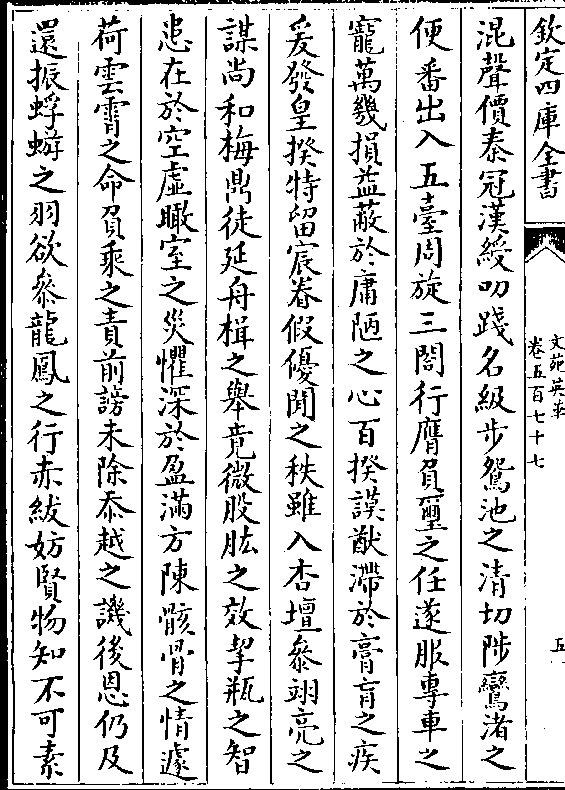 欽定四庫全書
文苑英華
卷五百七十七
五
混聲價秦冠漢綬叨踐名級步鴛池之清切陟鸞渚之
便番出入五臺周旋三閣行膺負璽之任遂服專車之
寵萬幾損益蔽於庸陋之心百揆謨猷滯於膏肓之疾
爰發皇揆特留宸眷假優閒之秩雖入杏壇叅翊亮之
謀尚和梅鼎徒延舟楫之舉竟微股肱之效挈瓶之智
患在於空虛瞰室之災懼深於盈滿方陳骸骨之情遽
荷雲霄之命負乘之責前謗未除忝越之譏後恩仍及
還振蜉蝣之羽欲叅龍鳳之行赤紱妨賢物知不可素